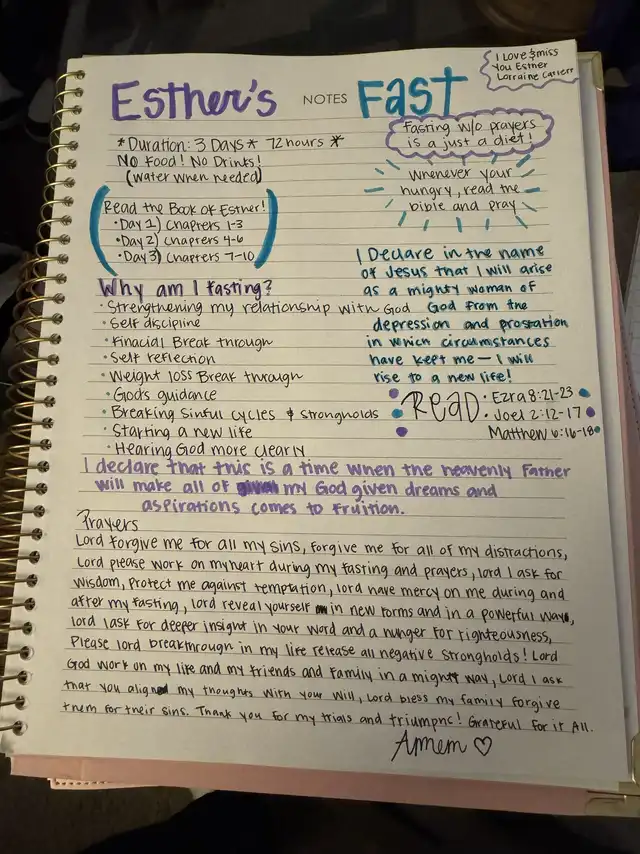 I Love & miss
You Esther
Lorraine
Esther's NOTES Fast
*Duration: 3 Days * 72 hours *
No Food! No Drinks!
(water when needed)
Fasting w/o prayers
is a just a diet!
Whenever your
hungry, read the
bible and pray
Read the Book of Esther!
• Day 1) Chapters 1-3
• Day 2) Chapters 4-6
• Day 3) Chapters 7-10
I Declare in the name
of Jesus that I will arise
as a mighty woman of
God from the
depression and prostation
in which circumstances
have kept me — I will
rise to a new life!
Why am I fasting?
• Strengthening my relationship with God
• Self discipline
• Finacial Break through
• Self reflection
• Weight loss Break through
• Gods guidance
• Breaking sinful cycles & strongholds
• Starting a new life
• Hearing God more clearly
READ: • Ezra 8:21-23
• Joel 2:12-17
Matthew 6:16-18
I declare that this is a time when the heavenly Father
will make all of my God given dreams and
aspirations comes to fruition.
Prayers
Lord forgive me for all my sins, forgive me for all of my distractions,
Lord please work on my heart during my fasting and prayers, lord I ask for
wisdom, protect me against temptation, lord have mercy on me during and
after my fasting, lord reveal yourself in new forms and in a powerful way,
lord I ask for deeper insight in your word and a hunger for righteousness,
Please lord breakthrough in my life release all negative strongholds! Lord
God work on my life and my friends and family in a mighty way, Lord I ask
that you align my thoughts with your will, Lord bless my family forgive
them for their sins. Thank you for my trials and triumphs! Grateful for it All.
Amem ♡